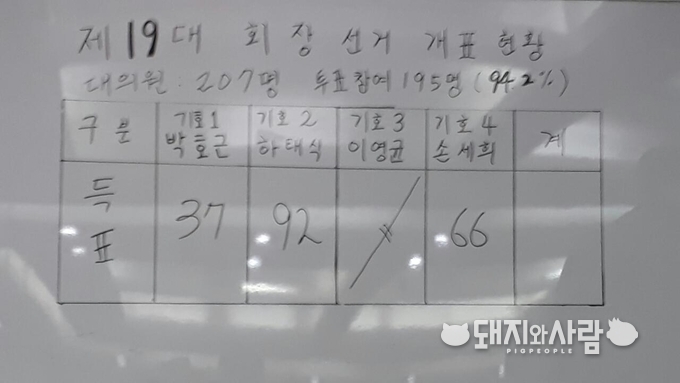 제19대 회장 선거 개표현황
대의원: 207명 투표참여 195명 (94.2%)
구분 기호1 박호근 기호2 하태식 기호3 이영균 기호4 손세희 계
득표 37 92 66
돼지와사람
PIGPEOPLE